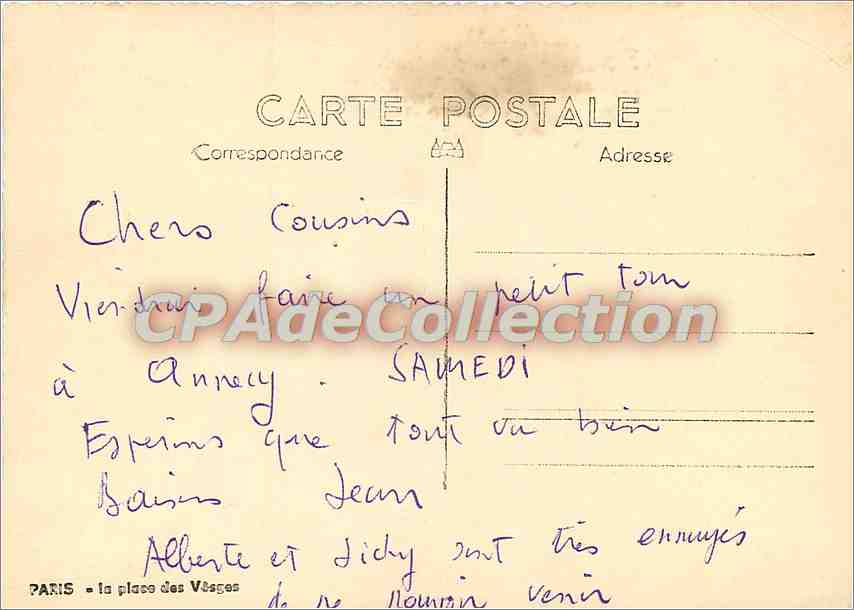 CARTE POSTALE
Correspondance Adresse
Chers Cousins
Viendrai faire un petit tour
CPAdeCollection
à Annecy. SAMEDI
Espérons que tout va bien
Baisers Jean
Alberte et Jicky sont très ennuyés
PARIS - la place des Vosges
de ne pouvoir venir